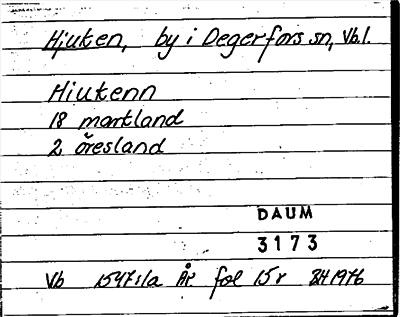 Hjuken, by i Degerfors sn, Vb.l.
Hiukenn
18 markland
2 öresland
DAUM
3173
Vb 1547:1a ÅR fol 15r BH 1976